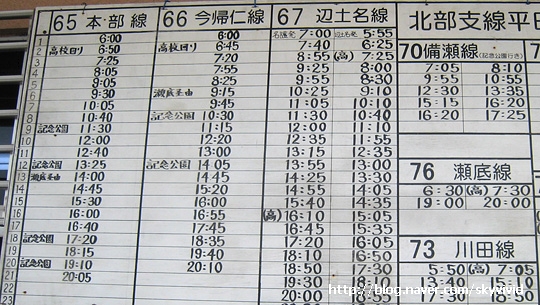 65 本・部 線
1 6:00
2 高校回り 6:50
3 7:25
4 8:05
5 8:25
7 10:05
8 10:40
9 記念公園 11:30
10 12:00
11 12:40
12 記念公園 13:25
13 瀬底経由 14:00
14 14:45
15 15:30
16 16:00
17 16:40
18 記念公園 17:20
19 18:35
20 記念公園 19:10
21 20:05
66 今帰仁線
6:00
高校回り 6:45
7:20
瀬底経由 9:15
9:45
記念公園 10:30
11:15
12:00
13:00
記念公園 14:05
14:40
15:20
16:00
16:55
17:45
18:35
19:10
20:10
67 辺土名線
名護発 7:00 辺土名発 5:55
7:40 6:25
8:25 (高) 7:25
9:25 8:00
9:55 8:30
10:25 9:10
11:05 10:10
11:30 10:40
12:00 11:10
12:30 11:35
13:15 12:35
13:55 13:00
14:25 13:30
14:50 14:00
15:30 14:35
(高) 16:10 15:05
16:45 15:35
17:20 16:05
18:50 17:30
北部支線平日
70 備瀬線 (記念公園行き)
7:05 8:10
9:55 10:55
12:30 13:35
15:15 16:20
16:20 17:25
76 瀬底線
6:30 (高) 7:30
19:00 20:00
73 川田線
5:50 (高) 7:05
http://blog.naver.com/skyvivid